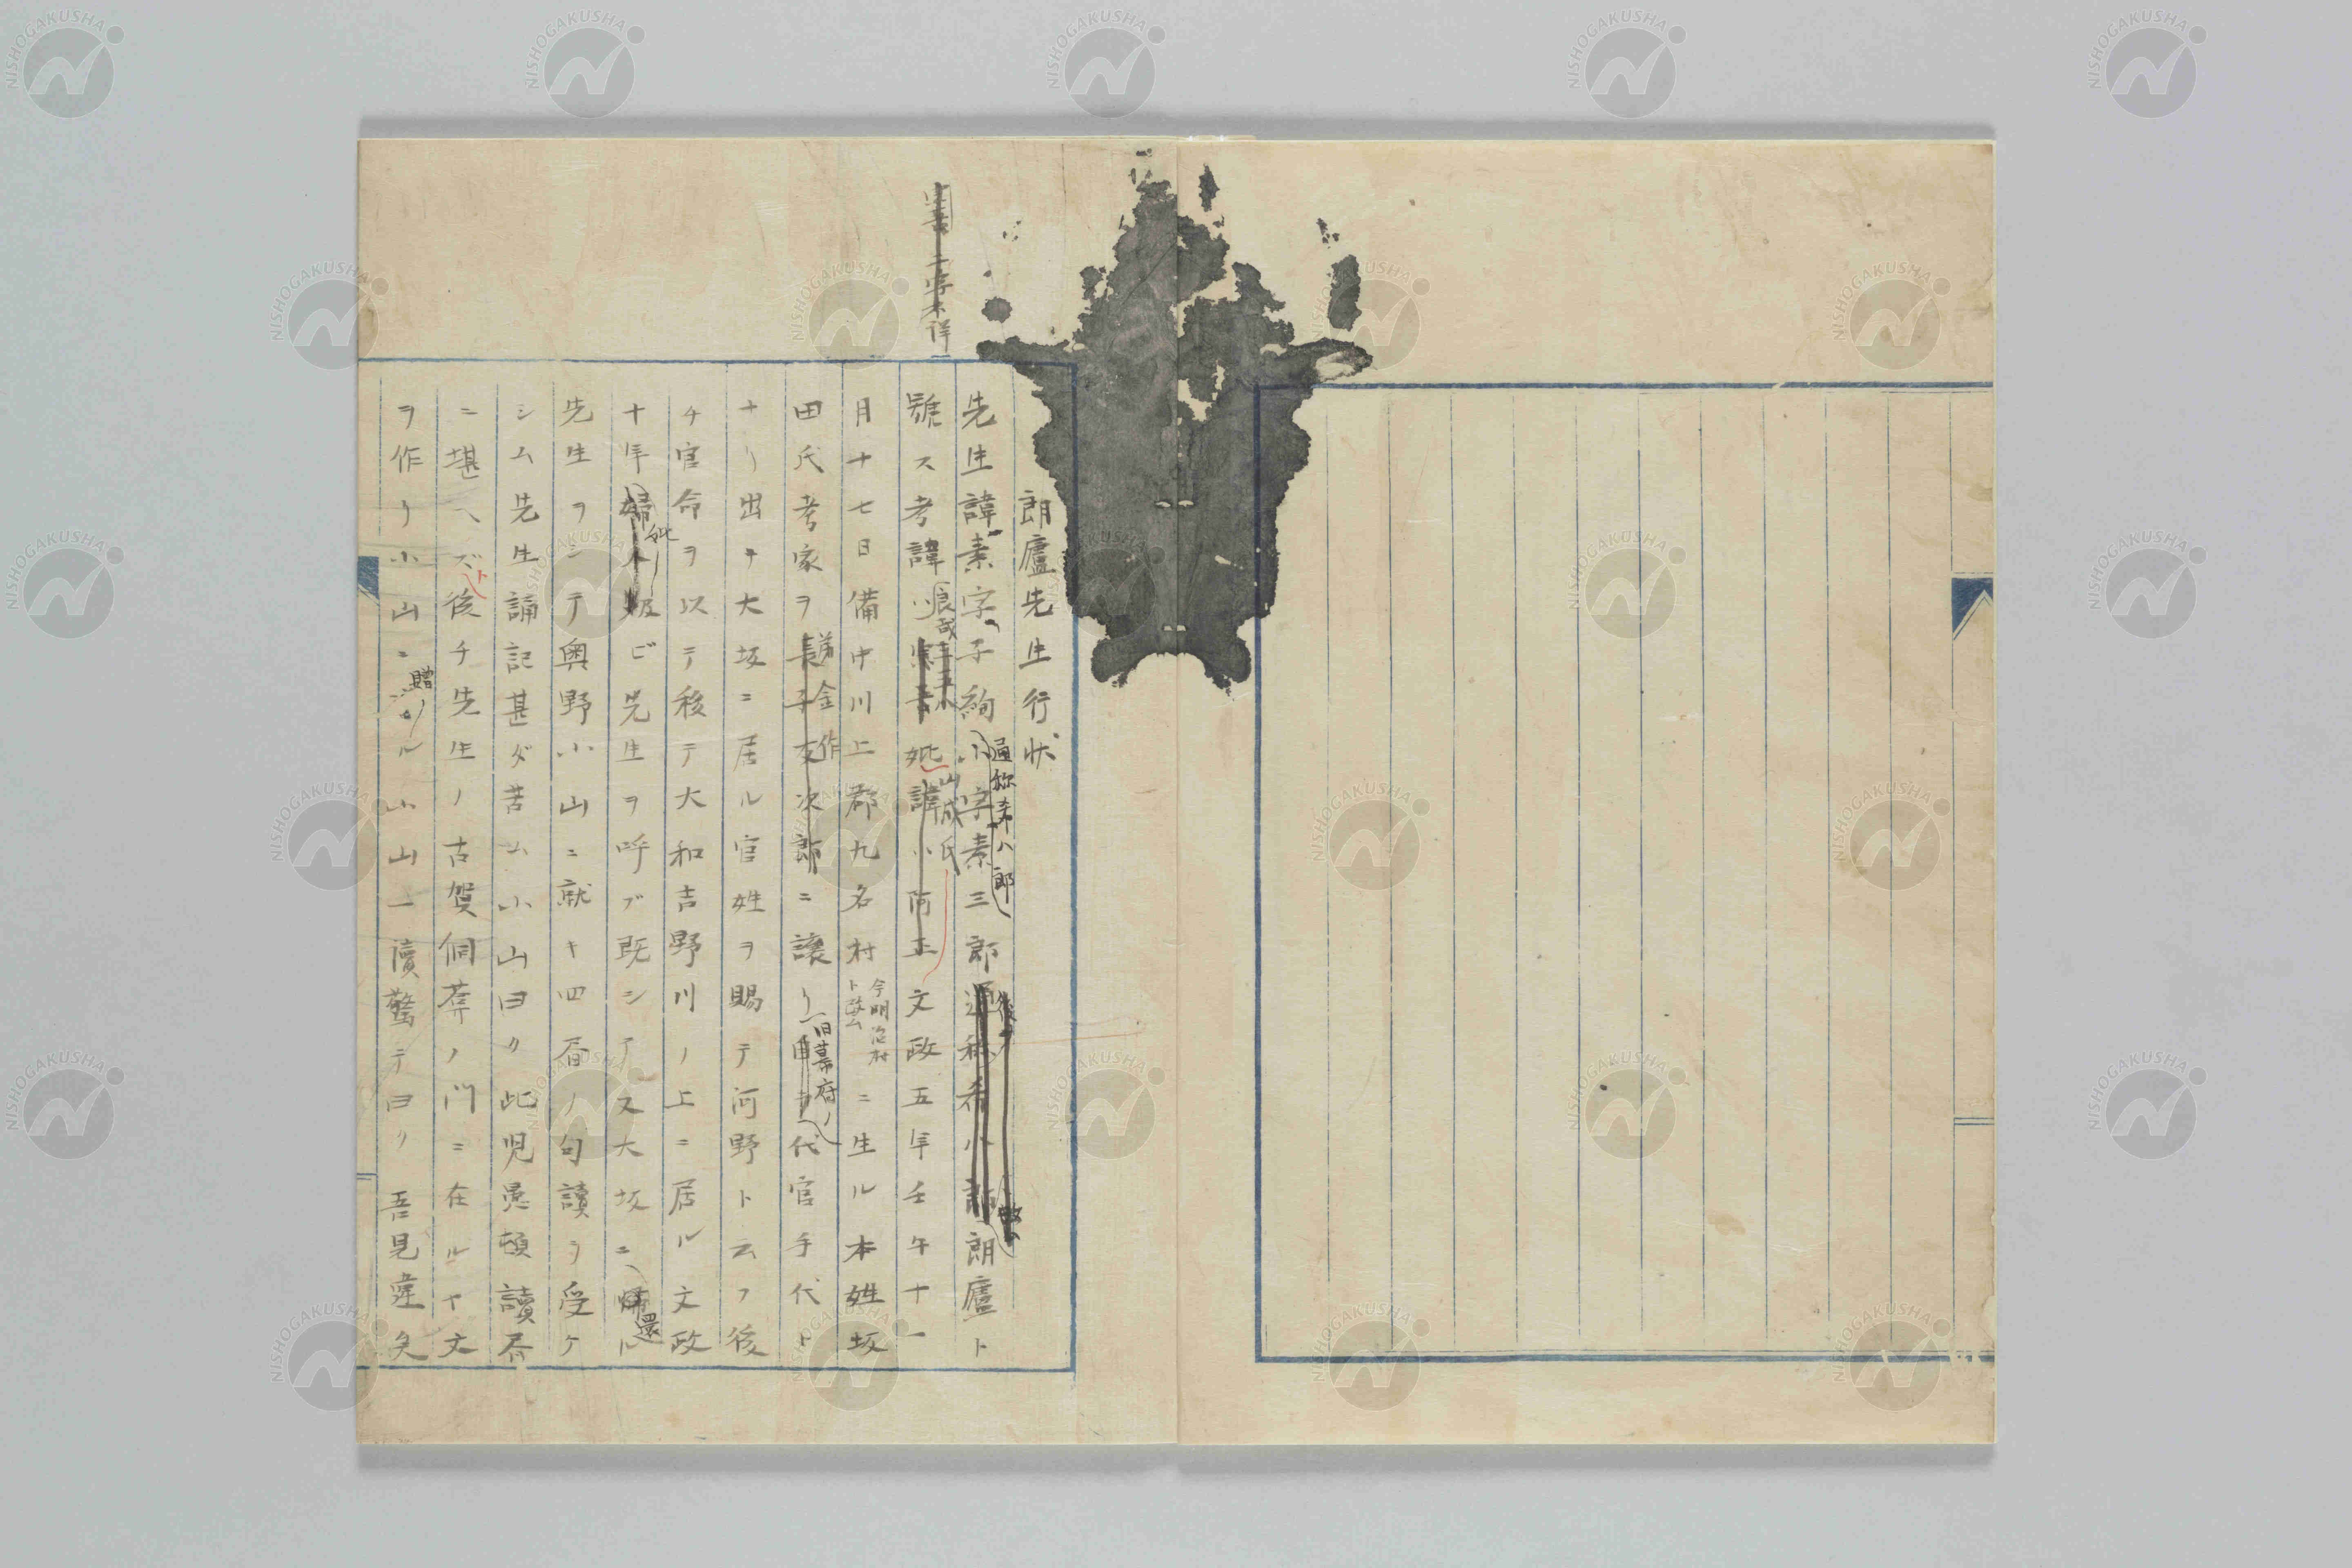 朗廬先生行状
先生諱素字子絢小字素三郎通称希八郎朗廬ト
通称希八郎
後
改
號ス考諱ハ
山成氏
文政五年壬午十一
月十七日備中川上郡九名村
今明治村
ト改ム
ニ生ル本姓坂
田氏考家ヲ長子友次郎ニ譲リ
弟金作
旧幕府ノ
代官手代ト
ナリ出テ大坂ニ居ル官姓ヲ賜テ河野ト云フ後
チ官命ヲ以テ移テ大和吉野川ノ上ニ居ル文政
十年
妣
及ビ先生ヲ呼ブ既シテ又大坂ニ帰ル
還
先生ヲシテ奥野小山ニ就キ四書ノ句讀ヲ受ケ
シム先生誦記甚ダ苦ム小山曰ク此児愚頓讀書
ニ堪ヘズト後チ先生ノ古賀侗菴ノ門ニ在ルヤ文
ヲ作リ小山ニ
贈
ル小山一讀驚テ曰ク吾見違矣
二字未詳
NISHOGAKUSHA